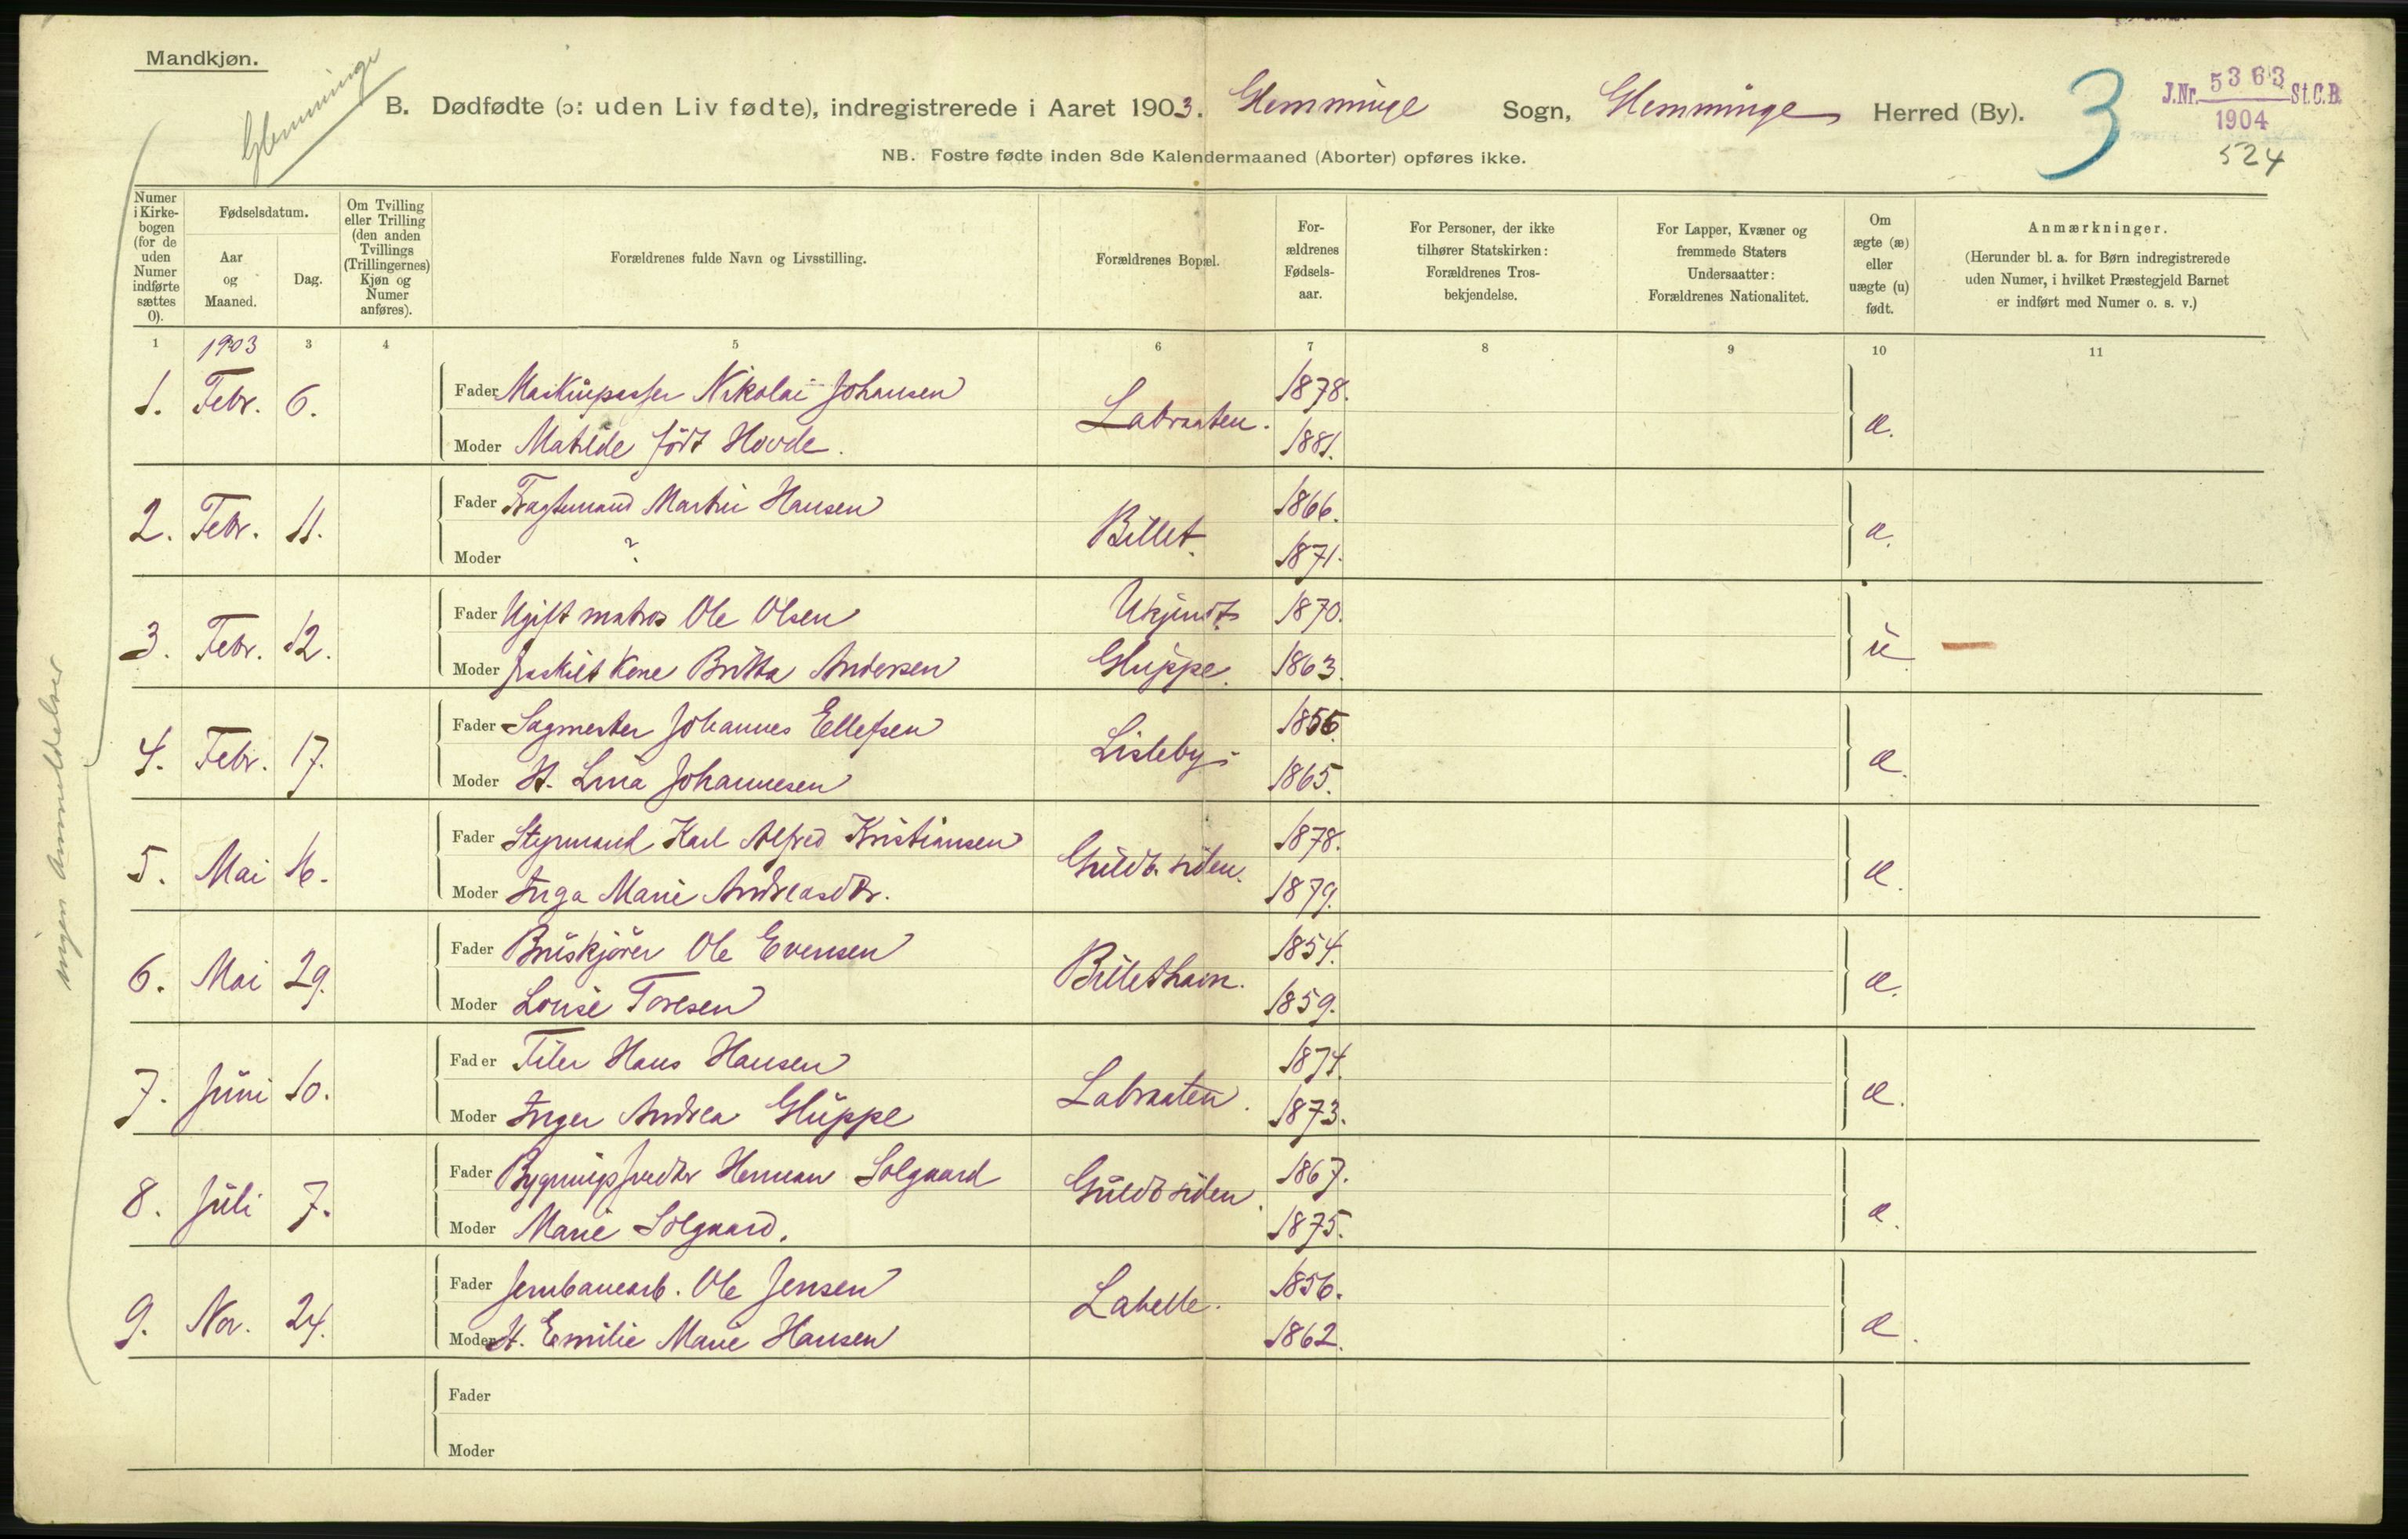 Mandkjøn.
Glemminge
B. Dødfødte (ɔ: uden Liv fødte), indregistrerede i Aaret 1903. Glemminge Sogn, Glemminge Herred (By).
3
J.Nr. 5363 St.C.B.
1904
524
NB. Fostre fødte inden 8de Kalendermaaned (Aborter) opføres ikke.
Numer i Kirkebogen (for de uden Numer indførte sættes 0).
Fødselsdatum.
Aar og Maaned.
Dag.
Om Tvilling eller Trilling (den anden Tvillings (Trillingernes) Kjøn og Numer anføres).
Forældrenes fulde Navn og Livsstilling.
Forældrenes Bopæl.
Forældrenes Fødselsaar.
For Personer, der ikke tilhører Statskirken: Forældrenes Trosbekjendelse.
For Lapper, Kvæner og fremmede Staters Undersaatter: Forældrenes Nationalitet.
Om ægte (æ) eller uægte (u) født.
Anmærkninger.
(Herunder bl. a. for Børn indregistrerede uden Numer, i hvilket Præstegjeld Barnet er indført med Numer o. s. v.)
1 1903 3 4 5 6 7 8 9 10 11
1. Febr. 6. Fader Maskinpasser Nikolai Johansen Labraaten. 1878. æ.
Moder Matilde født Hovde. 1881.
2. Febr. 11. Fader Fragtemand Martin Hansen Billet. 1866. æ.
Moder ? 1871.
3. Febr. 12. Fader Ugift matros Ole Olsen Ukjendt 1870. u
Moder fraskilt Kone Britta Andersen Gluppe. 1863.
4. Febr. 17. Fader Sagmester Johannes Ellefsen Lisleby. 1855. æ.
Moder H. Lina Johannesen 1865.
5. Mai 16. Fader Styrmand Karl Alfred Kristiansen Guldb.siden. 1878. æ.
Moder Inga Marie Andreasdtr. 1879.
6. Mai 29. Fader Bruskjører Ole Evensen Billethavn. 1854. æ.
Moder Lovise Toresen 1859.
7. Juni 10. Fader Filer Hans Hansen Labraaten. 1874. æ.
Moder Inger Andrea Gluppe 1873.
8. Juli 7. Fader Herman Solgaard Guldbsiden. 1867. æ.
Moder Marie Solgaard. 1875.
9. Nov. 24. Fader Jernbanearb. Ole Jensen Labelle. 1856. æ.
Moder H. Emilie Marie Hansen 1862.
Fader
Moder
ingen Anmeldelser